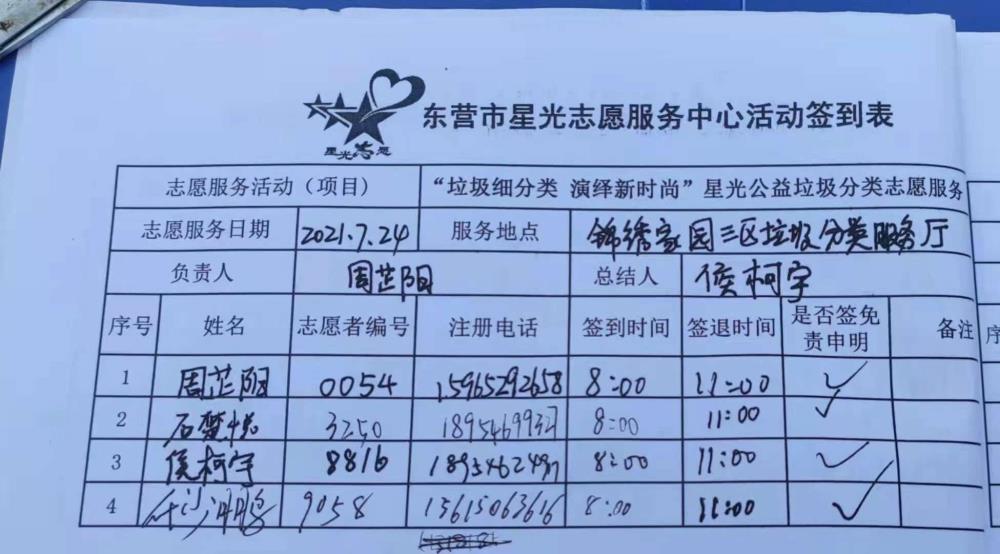 星光志愿
东营市星光志愿服务中心活动签到表
志愿服务活动（项目） “垃圾细分类 演绎新时尚”星光公益垃圾分类志愿服务
志愿服务日期 2021.7.24 服务地点 锦绣家园三区垃圾分类服务厅
负责人 周芷阳 总结人 侯柯宇
序号 姓名 志愿者编号 注册电话 签到时间 签退时间 是否签免责申明 备注 序
1 周芷阳 0054 15965292658 8:00 11:00 ✓
2 石梦悦 3250 8:00 11:00 ✓
3 侯柯宇 8816 8:00 11:00 ✓
4 9058 15615063616 8:00 11:00 ✓